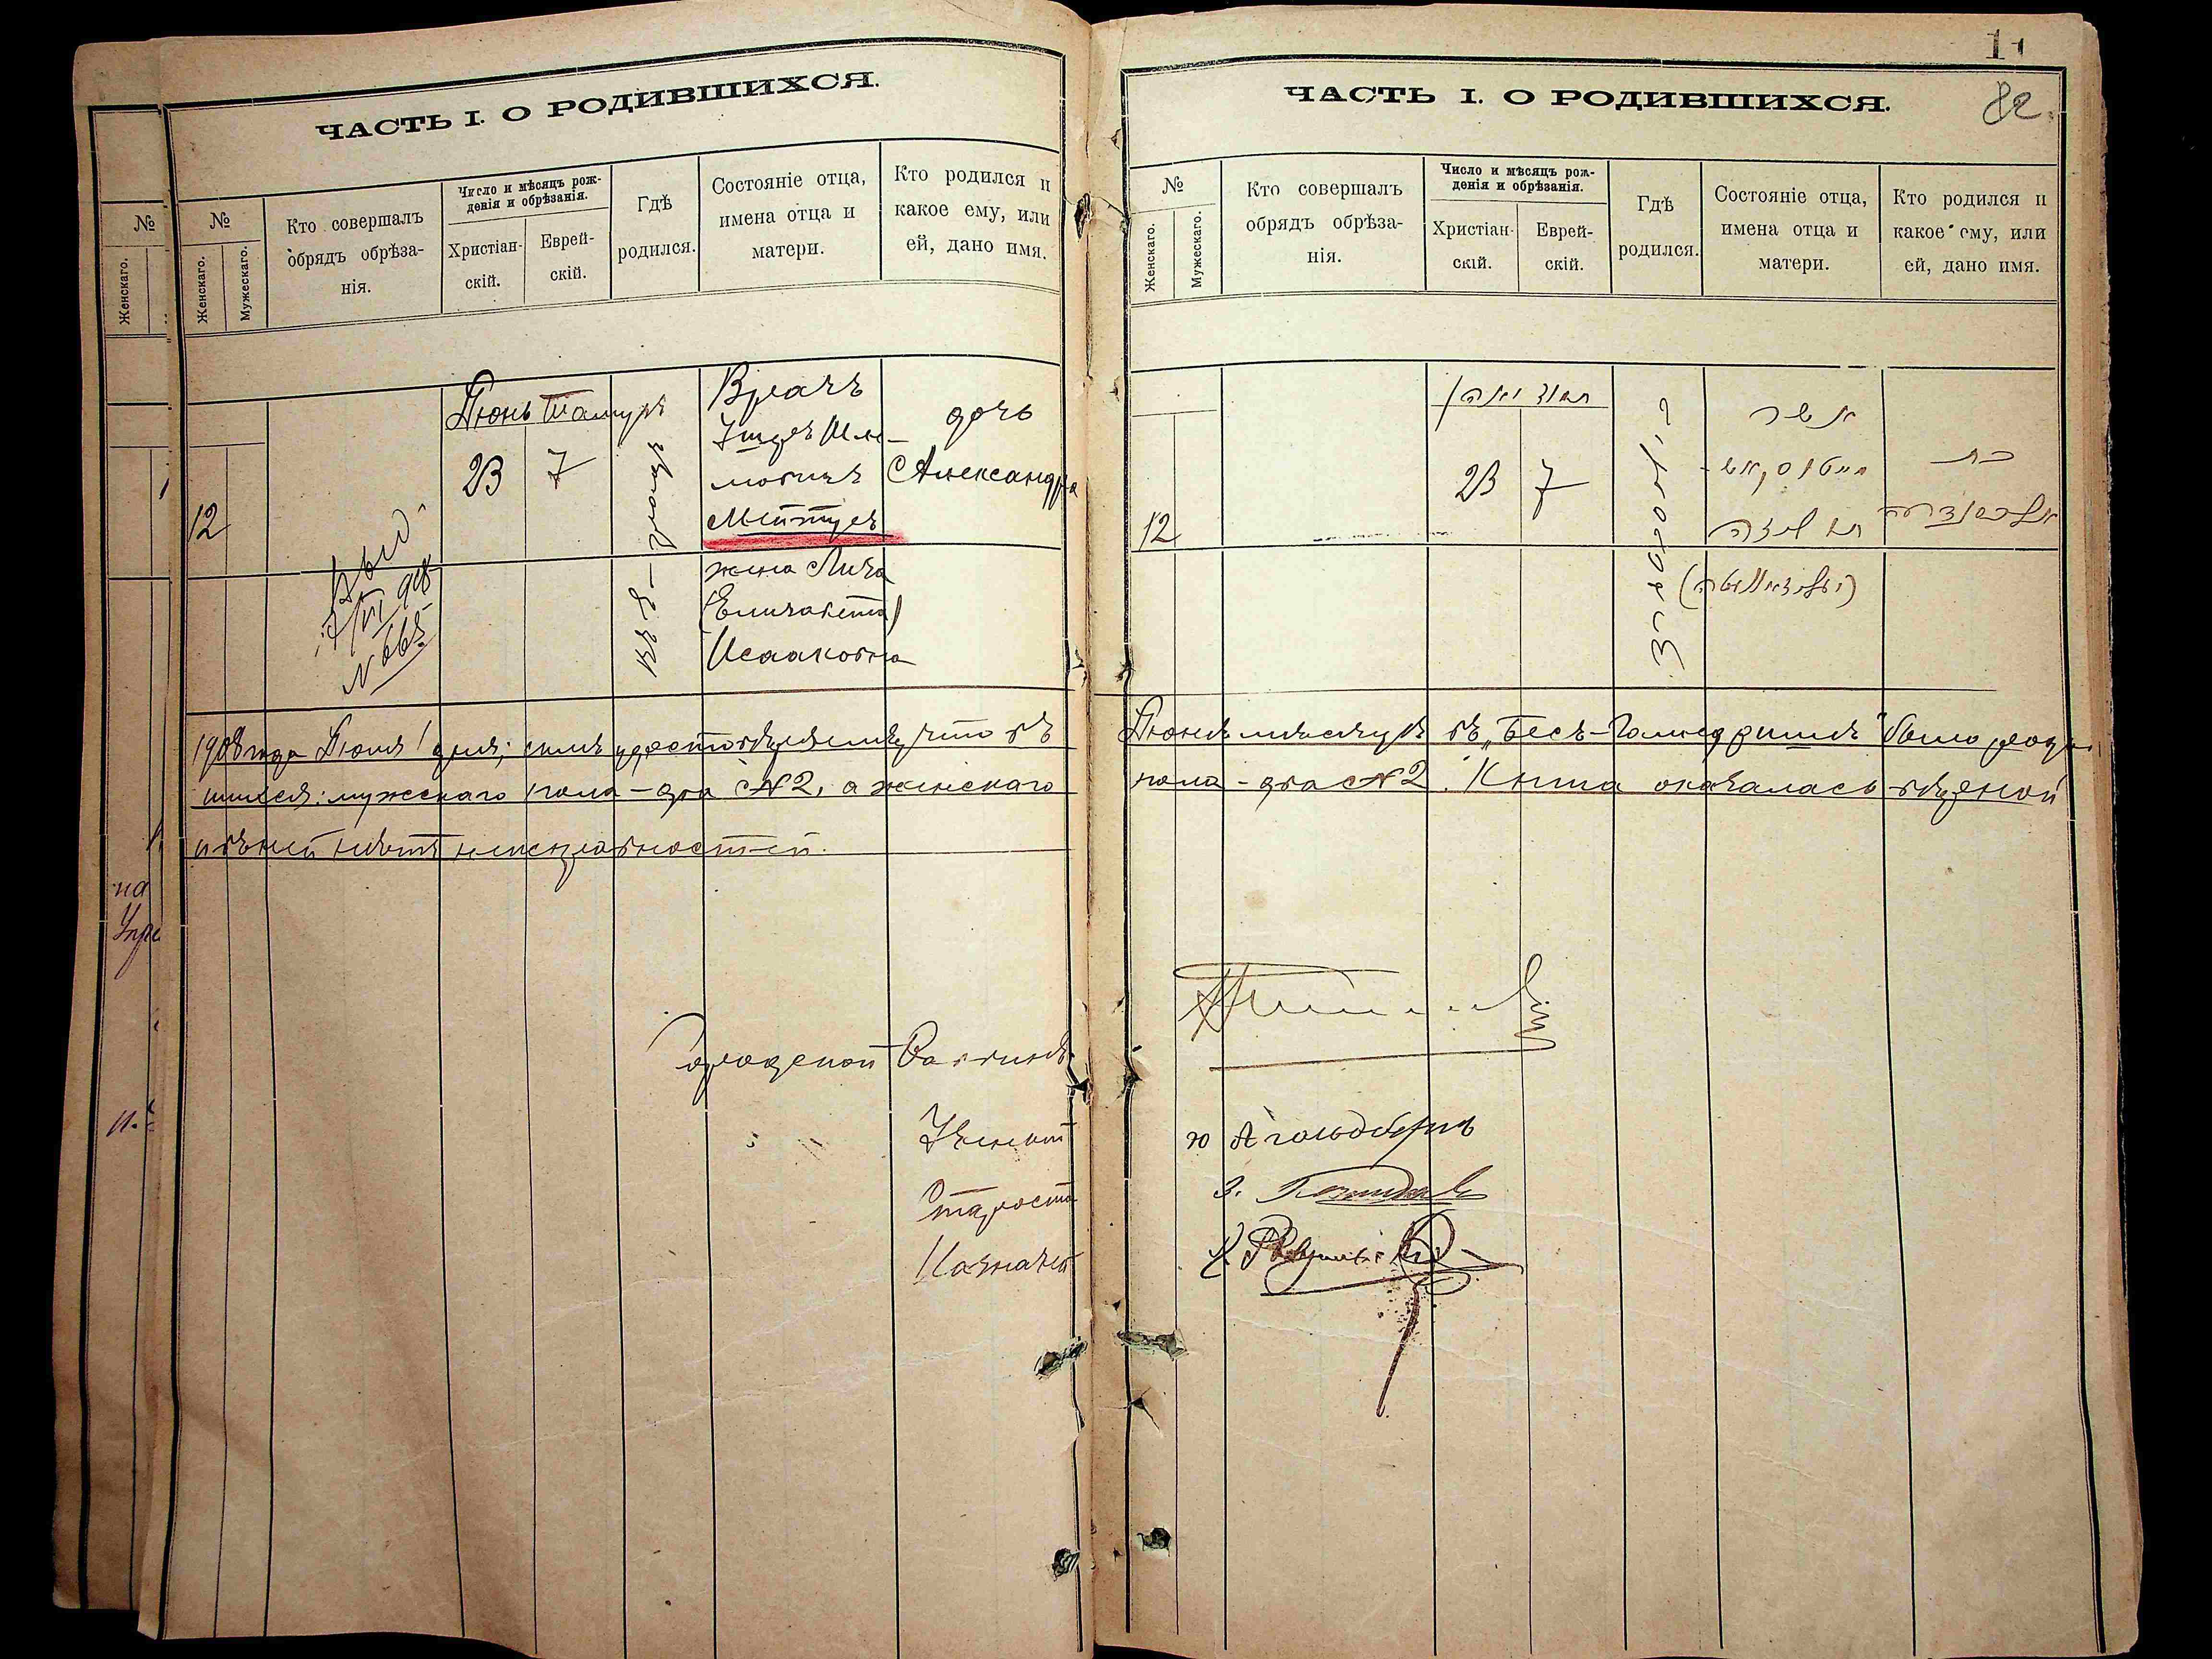 ЧАСТЬ I. О РОДИВШИХСЯ.
№
Женскаго.
№
Женскаго.
Мужескаго.
Кто совершалъ
обрядъ обрѣза-
нія.
Число и мѣсяцъ рож-
денія и обрѣзанія.
Христіан-
скій.
Еврей-
скій.
Гдѣ
родился.
Состояніе отца,
имена отца и
матери.
Кто родился и
какое ему, или
ей, дано имя.
12
Іюнь Тамузъ
23
7
Врачъ
мовичъ
Мейтусъ
жена Лиза
(Елизавета)
Исааковна
дочь
Александра
№ 665
1908 года Іюля 1 дня, симъ удостовѣряемъ, что въ
шихся: мужескаго пола - два №2, а женскаго
и въ ней нѣтъ неисправностей.
на
Городской Раввинъ
Ученый
Староста
Казначей
ЧАСТЬ I. О РОДИВШИХСЯ.
82.
№
Женскаго.
Мужескаго.
Кто совершалъ
обрядъ обрѣза-
нія.
Число и мѣсяцъ рож-
денія и обрѣзанія.
Христіан-
скій.
Еврей-
скій.
Гдѣ
родился.
Состояніе отца,
имена отца и
матери.
Кто родился и
какое ему, или
ей, дано имя.
12
23
7
אשר
בת
אלכסנדרה
Іюнѣ мѣсяцѣ въ „Бесъ-Гамедришѣ" было родив
пола - два №2. Книга оказалась вѣрной
Гольдбергъ